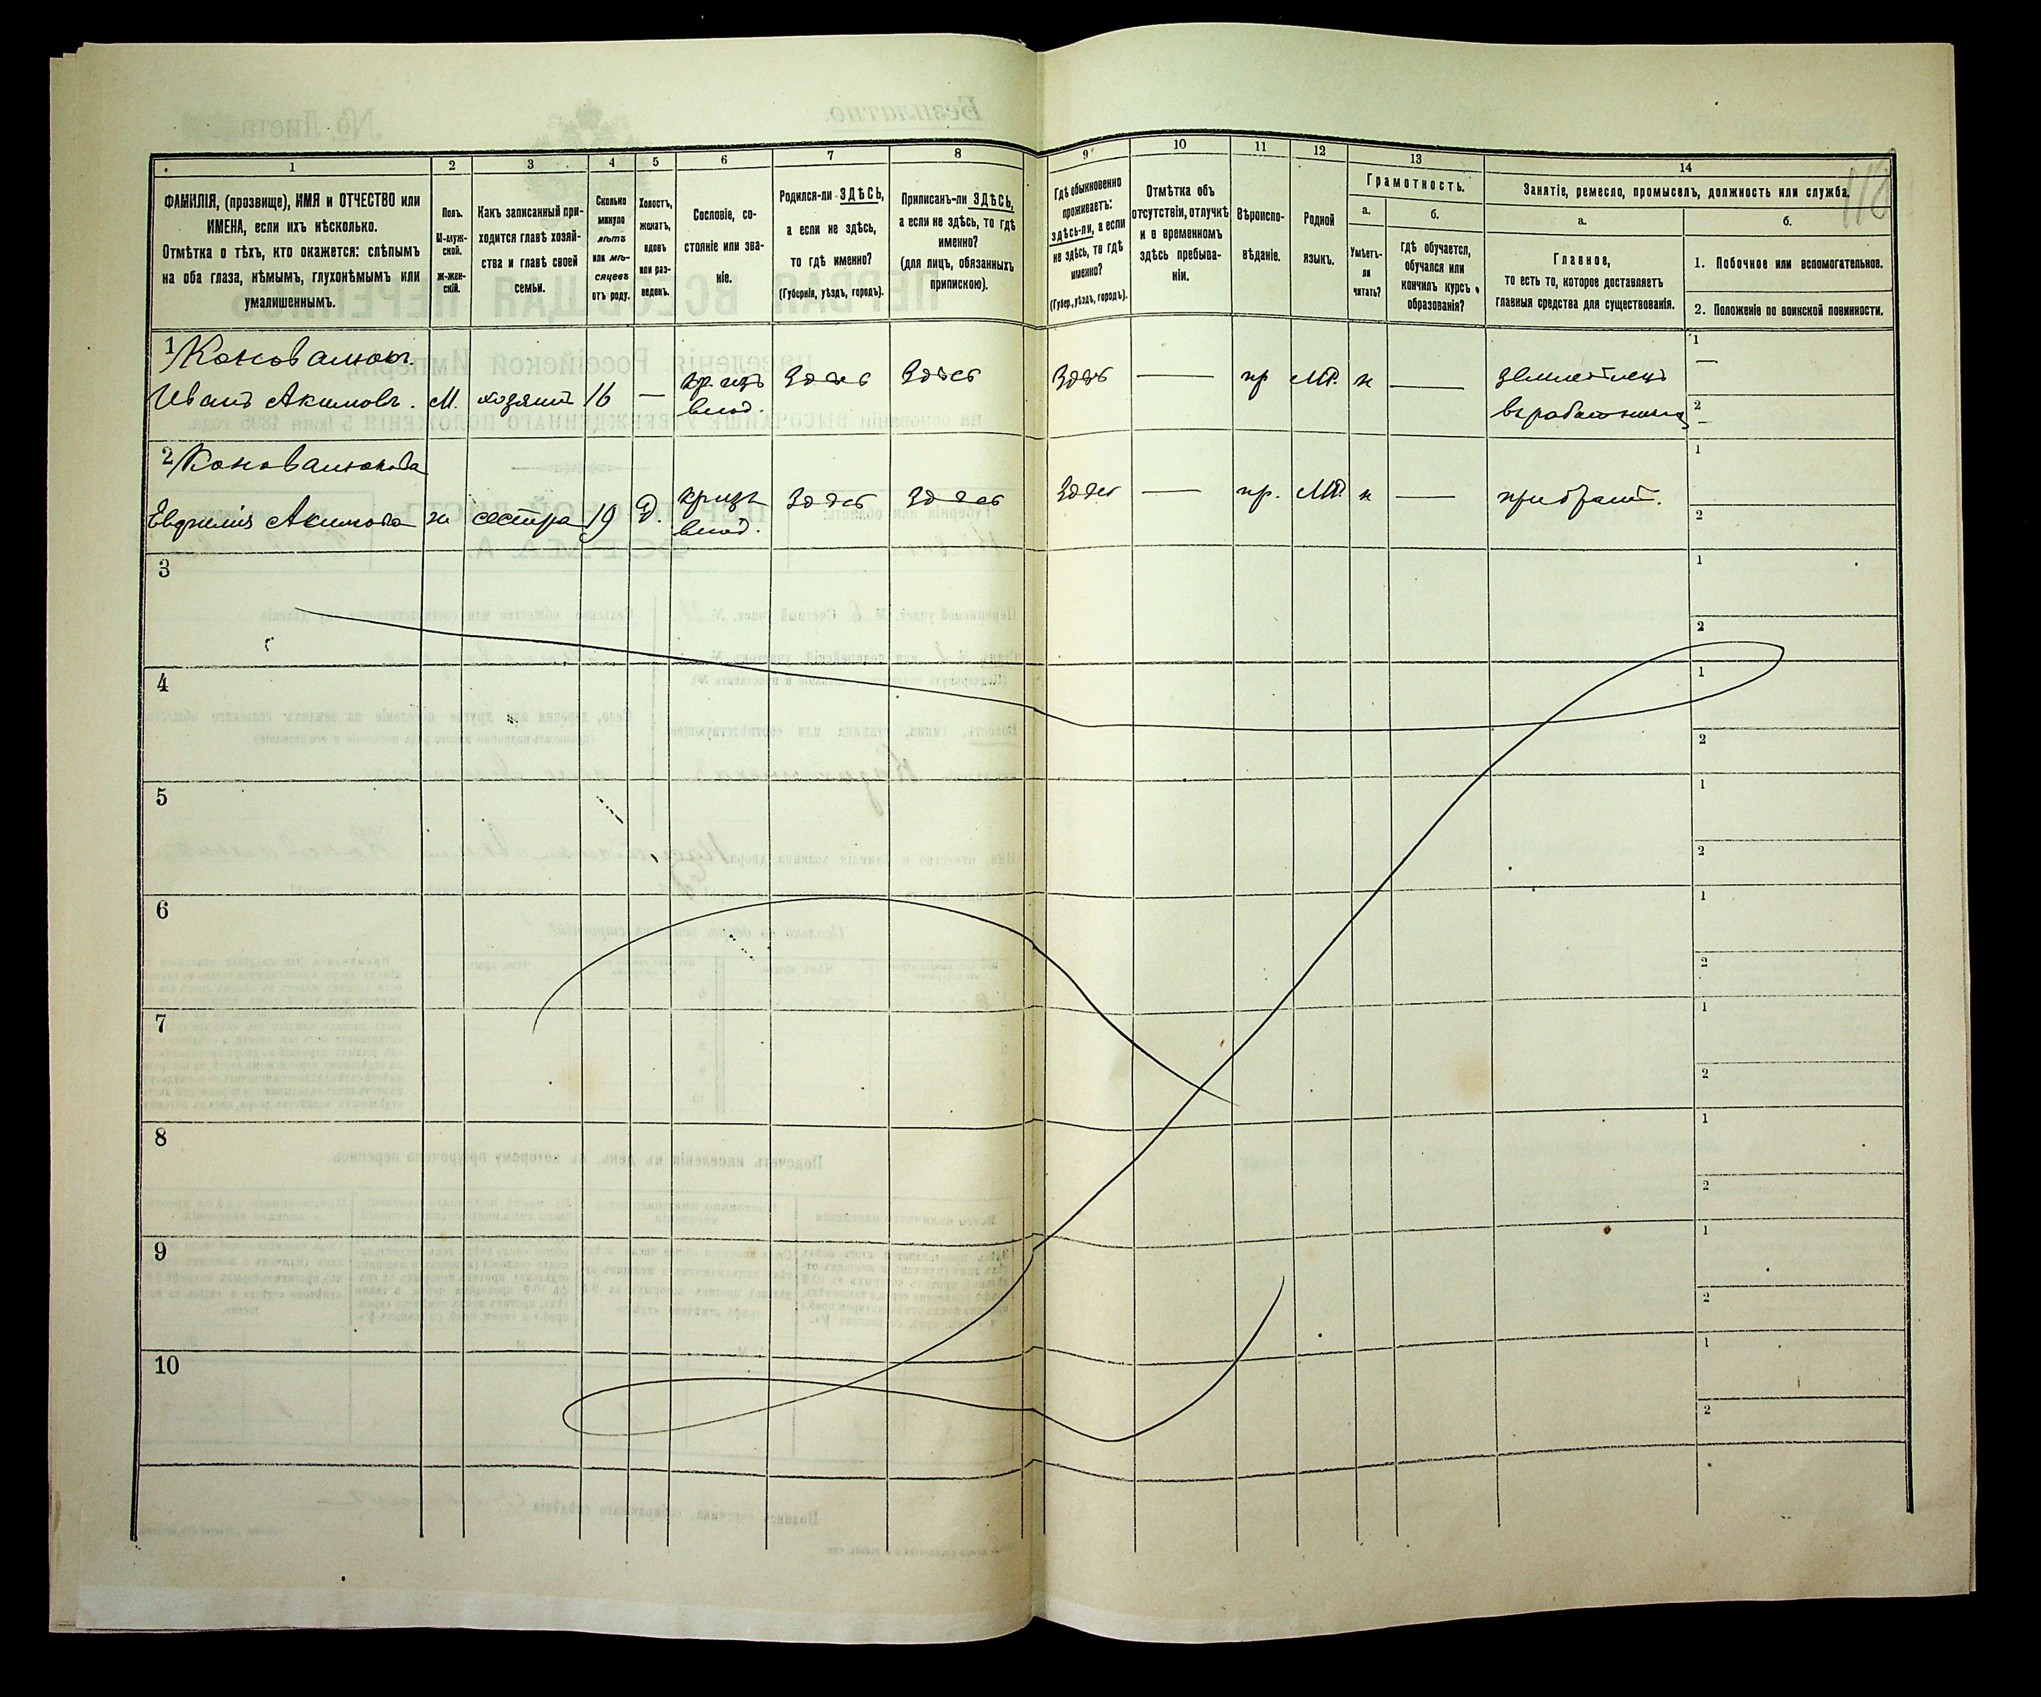 116
1 2 3 4 5 6 7 8 9 10 11 12 13 14
ФАМИЛІЯ, (прозвище), ИМЯ и ОТЧЕСТВО или
ИМЕНА, если ихъ нѣсколько.
Отмѣтка о тѣхъ, кто окажется: слѣпымъ
на оба глаза, нѣмымъ, глухонѣмымъ или
умалишеннымъ.
Полъ.
М-муж-
ской.
ж-жен-
скій.
Какъ записанный при-
ходится главѣ хозяй-
ства и главѣ своей
семьи.
Сколько
минуло
лѣтъ
или мѣ-
сяцевъ
отъ роду.
Холостъ,
женатъ,
вдовъ
или раз-
веденъ.
Сословіе, со-
стояніе или зва-
ніе.
Родился-ли ЗДѢСЬ,
а если не здѣсь,
то гдѣ именно?
(Губернія, уѣздъ, городъ).
Приписанъ-ли ЗДѢСЬ,
а если не здѣсь, то гдѣ
именно?
(для лицъ, обязанныхъ
припискою).
Гдѣ обыкновенно
проживаетъ:
здѣсь-ли, а если
не здѣсь, то гдѣ
именно?
(Губер., уѣздъ, городъ).
Отмѣтка объ
отсутствіи, отлучкѣ
и о временномъ
здѣсь пребыва-
ніи.
Вѣроиспо-
вѣданіе.
Родной
языкъ.
Грамотность.
а.
Умѣетъ-
ли
читать?
б.
гдѣ обучается,
обучался или
кончилъ курсъ
образованія?
Занятіе, ремесло, промыселъ, должность или служба.
а.
Главное,
то есть то, которое доставляетъ
главныя средства для существованія.
б.
1. Побочное или вспомогательное.
2. Положеніе по воинской повинности.
1 Коновалюкъ
Иванъ Акимовъ. М. хозяинъ 16 — кр. изъ влад. Здѣсь Здѣсь Здѣсь — пр МР. н — земледѣлецъ
1 —
2 —
2 Коновалюкова
Евфимія Акимова ж сестра 19 Д. кр изъ влад. Здѣсь Здѣсь Здѣсь — пр. МР. н — при братѣ.
1
2
3
1
2
4
1
2
5
1
2
6
1
2
7
1
2
8
1
2
9
1
2
10
1
2